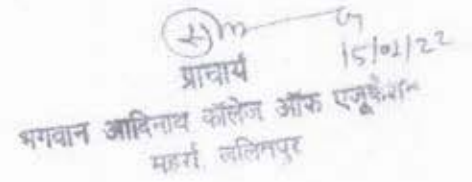 15/01/22
प्राचार्य
भगवान आदिनाथ कॉलेज ऑफ एजूकेशन
महर्रा, ललितपुर